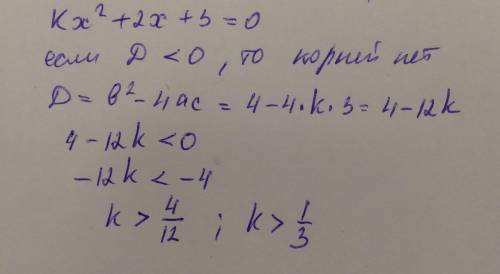 Kx² + 2x + 3 = 0
если D < 0, то корней нет
D = b² - 4ac = 4 - 4·k·3 = 4 - 12k
4 - 12k < 0
-12k < -4
k > 4/12 ; k > 1/3